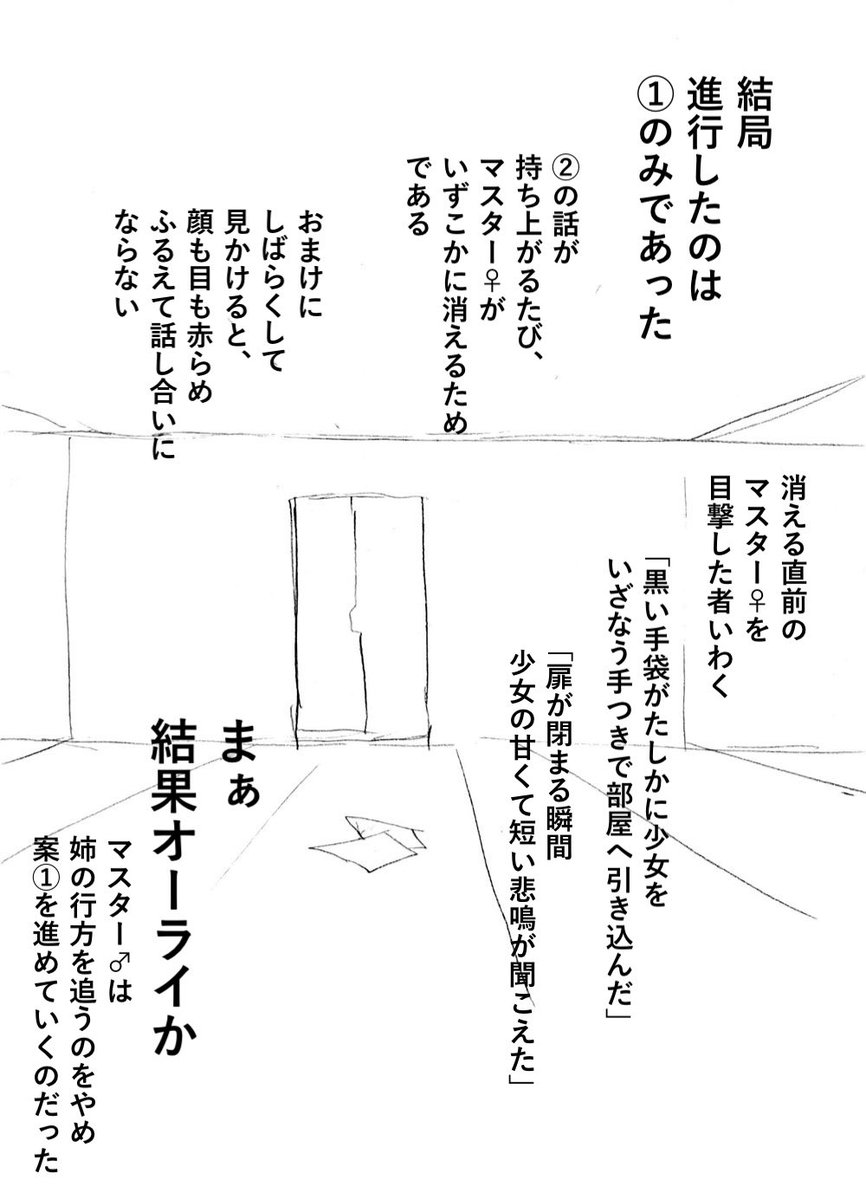 結局
進行したのは
①のみであった
②の話が
持ち上がるたび、
マスター♀が
いずこかに消えるため
である
おまけに
しばらくして
見かけると、
顔も目も赤らめ
ふるえて話し合いに
ならない
消える直前の
マスター♀を
目撃した者いわく
「黒い手袋がたしかに少女を
いざなう手つきで部屋へ引き込んだ」
「扉が閉まる瞬間
少女の甘くて短い悲鳴が聞こえた」
まぁ
結果オーライか
マスター♂は
姉の行方を追うのをやめ
案①を進めていくのだった